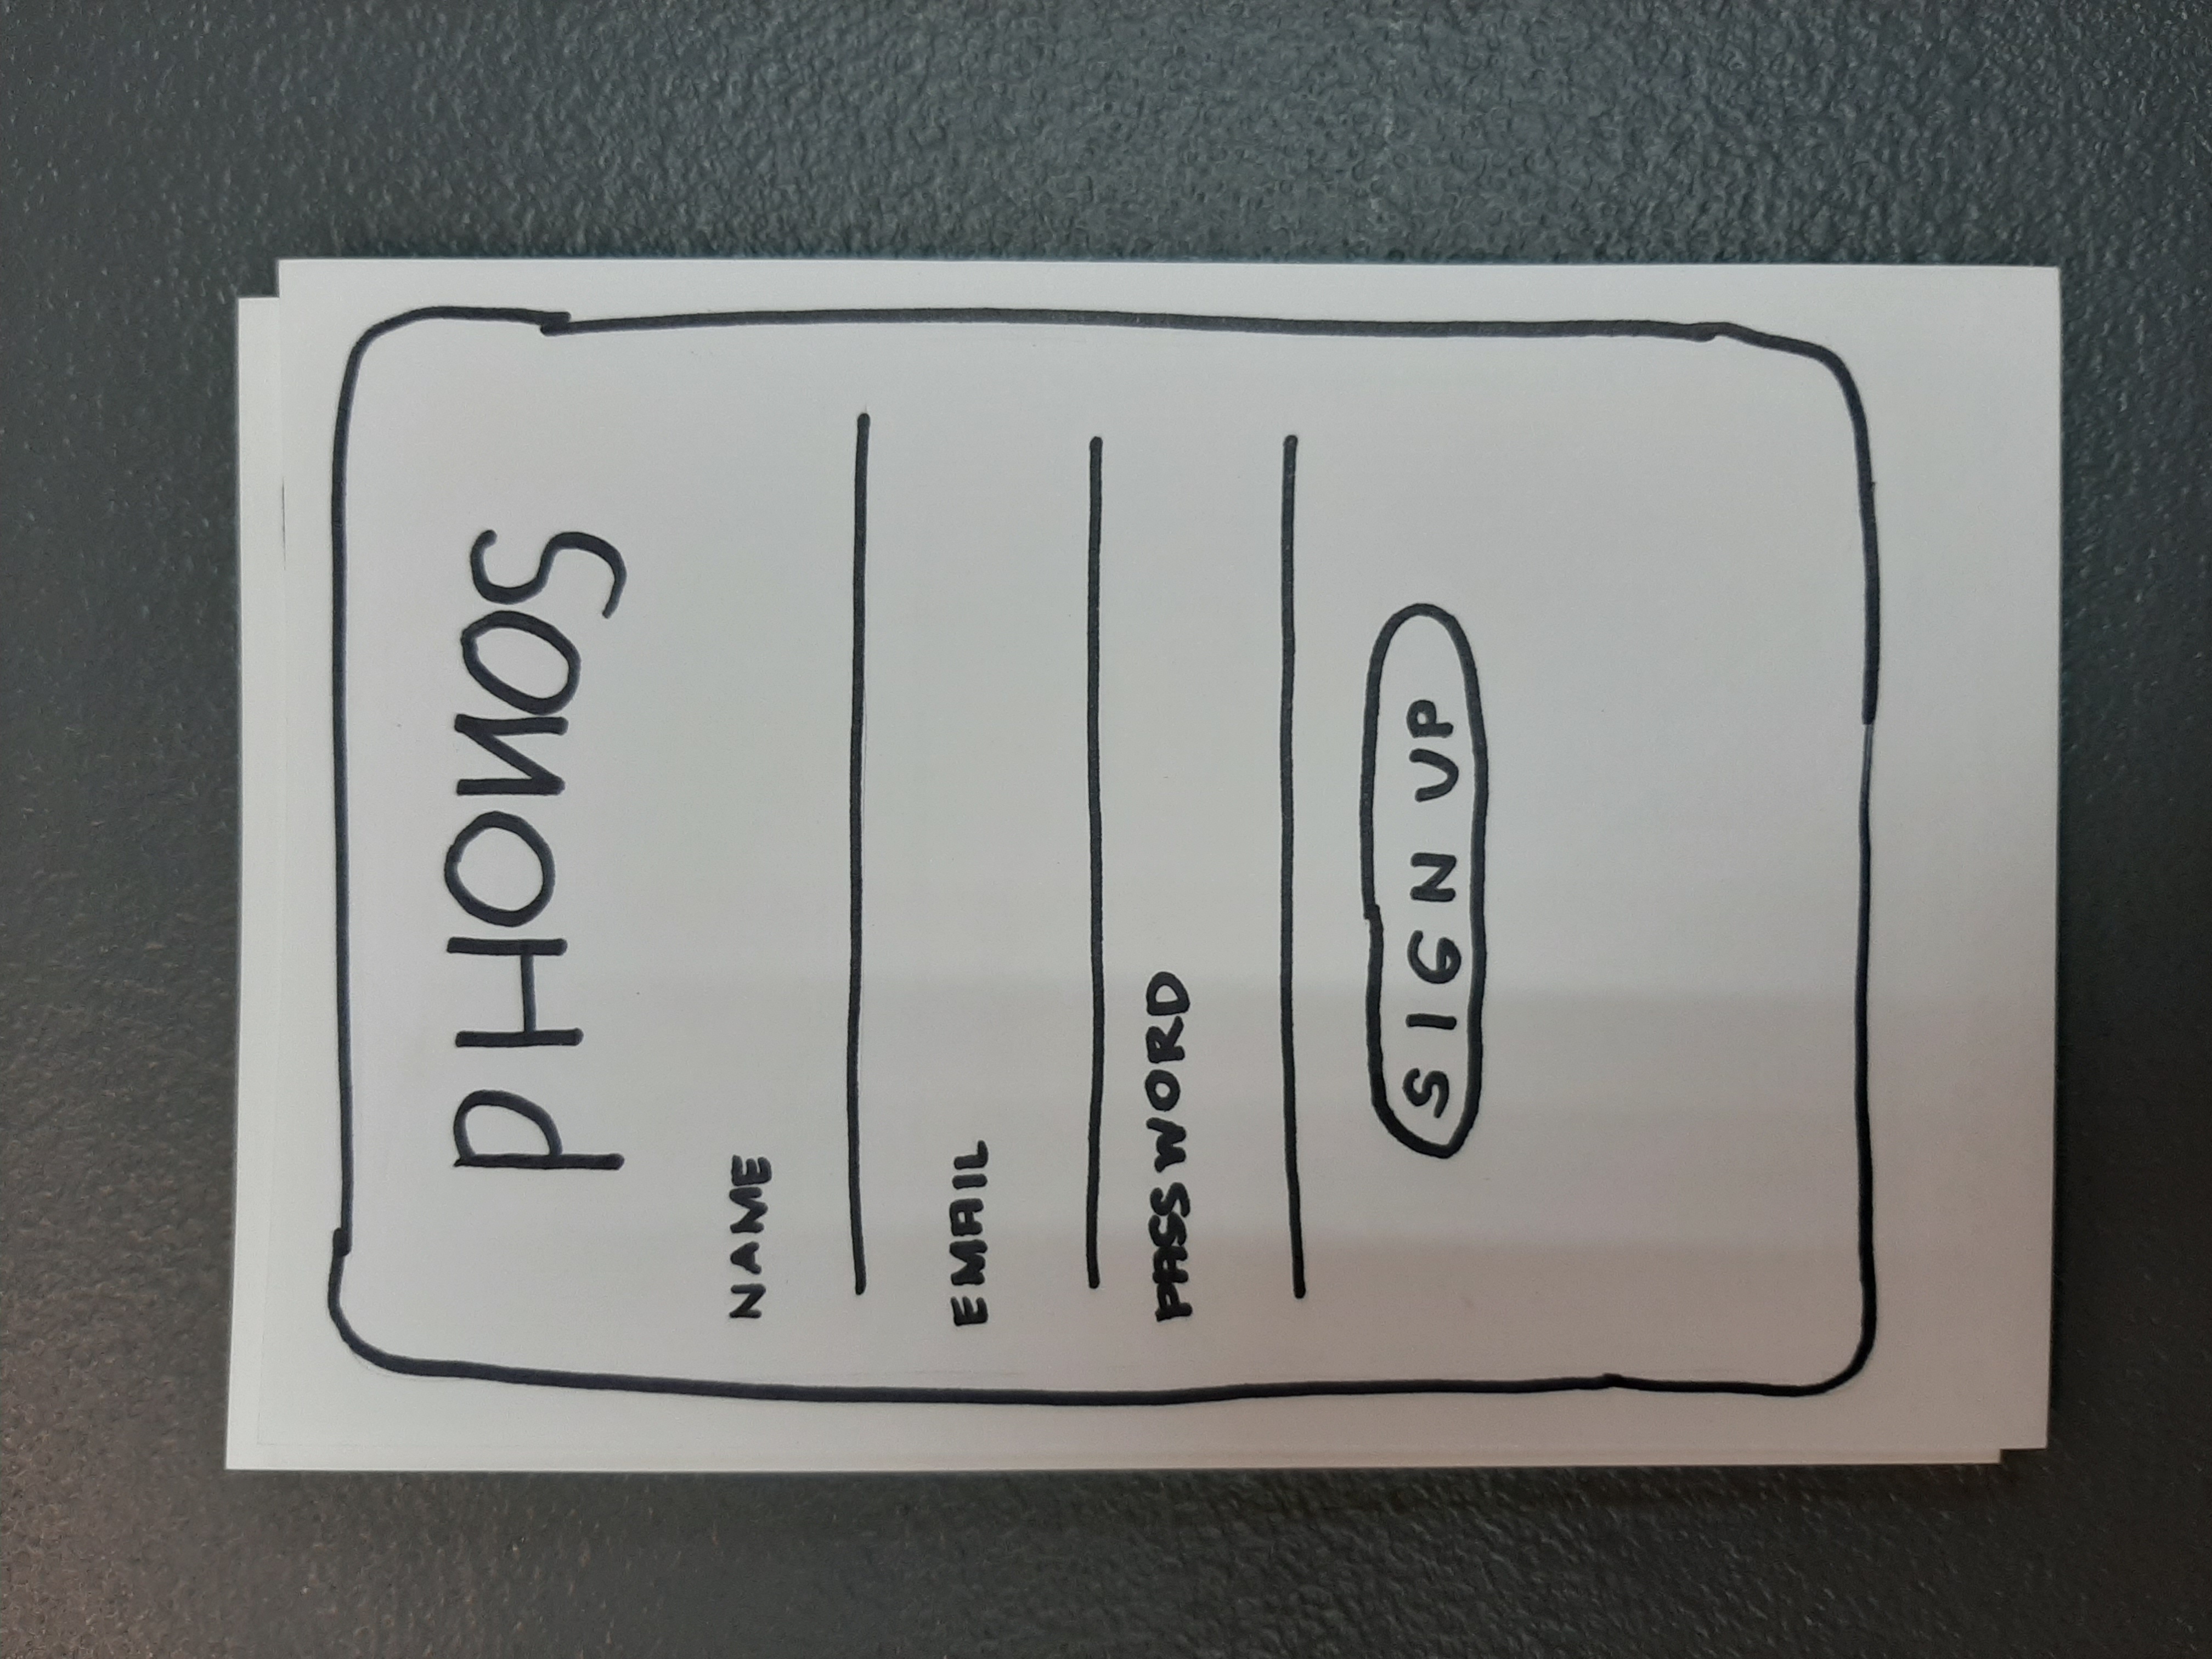 PHONOS
NAME
EMAIL
PASSWORD
SIGN UP